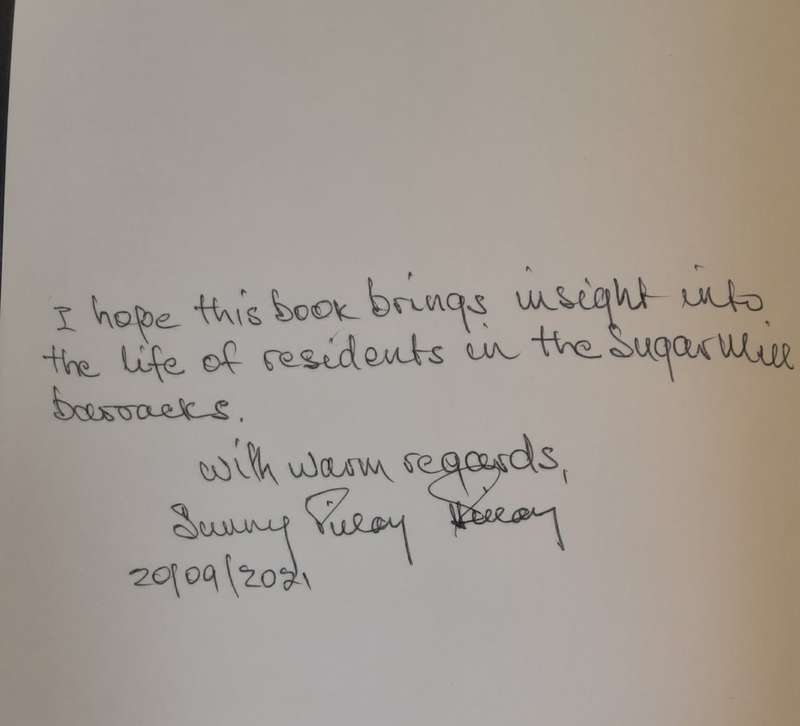 I hope this book brings insight into
the life of residents in the Sugar Mill
barracks.
with warm regards,
Sunny Pillay Pillay
20/09/2021